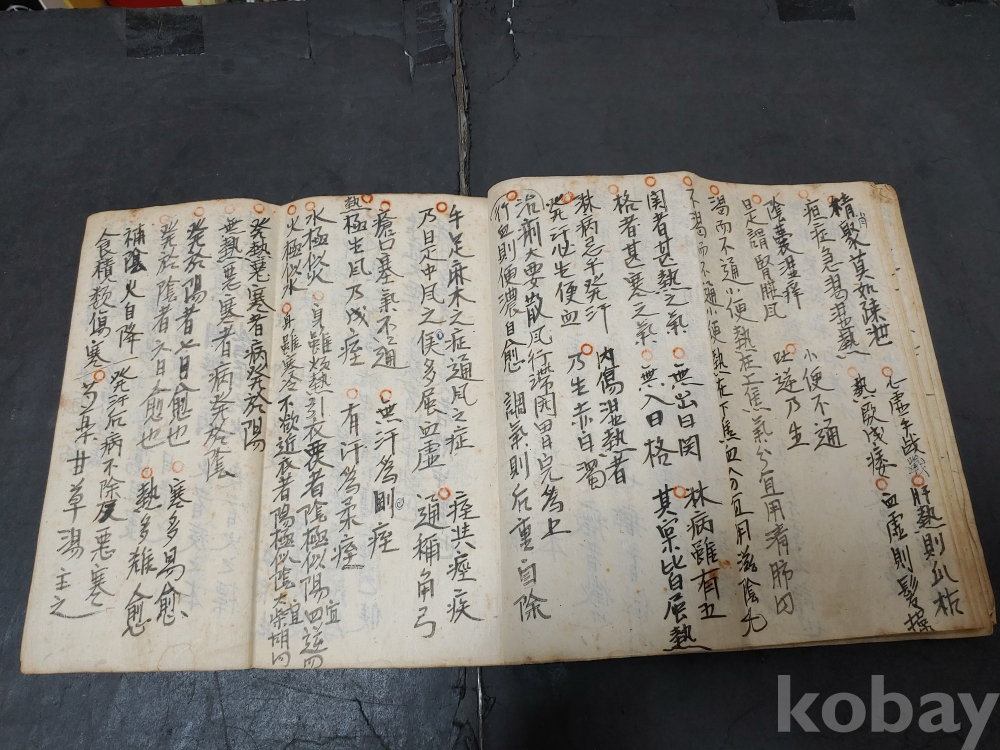 心虛手戰 肝熱則爪枯
熱厥成痿 血虛則髮燥
精聚莫如疎泄
疸症急渴湿熱 小便不通
陰囊湿痒 吐逆乃生
是謂腎臟風
渴而不通小便熱在上焦氣分宜用清肺
不渴而不通小便熱在下焦血分宜用滋陰
関者甚熱之氣 無出曰関 淋病雖有五
格者甚寒之氣 無入曰格 其宗皆屬熱
淋病忌乎発汗 內傷湿熱者
発汗必生便血 乃生赤白濁
治痢大要散風行滯因曰兄為上
行血則便濃自愈 調氣則后重自除
手足麻木之症通風之症 痙共痙疾
乃是中風之候多屬血虛 通稱角弓
瘡口塞氣不通 無汗為剛痙
熱極生風乃成痙 有汗為柔痙
水極似火 身雖煩熱引衣裹者陰極似陽宜四逆
火極似水 身雖寒冷不欲近衣者陽極似陰宜柴胡
発熱惡寒者病発於陽
無熱惡寒者病発於陰
発於陽者七日愈也 寒多易愈
発於陰者六日愈也 熱多難愈
補陰火自降 発汗后病不除反惡寒
食積類傷寒 芍 甘草湯主之
kobay